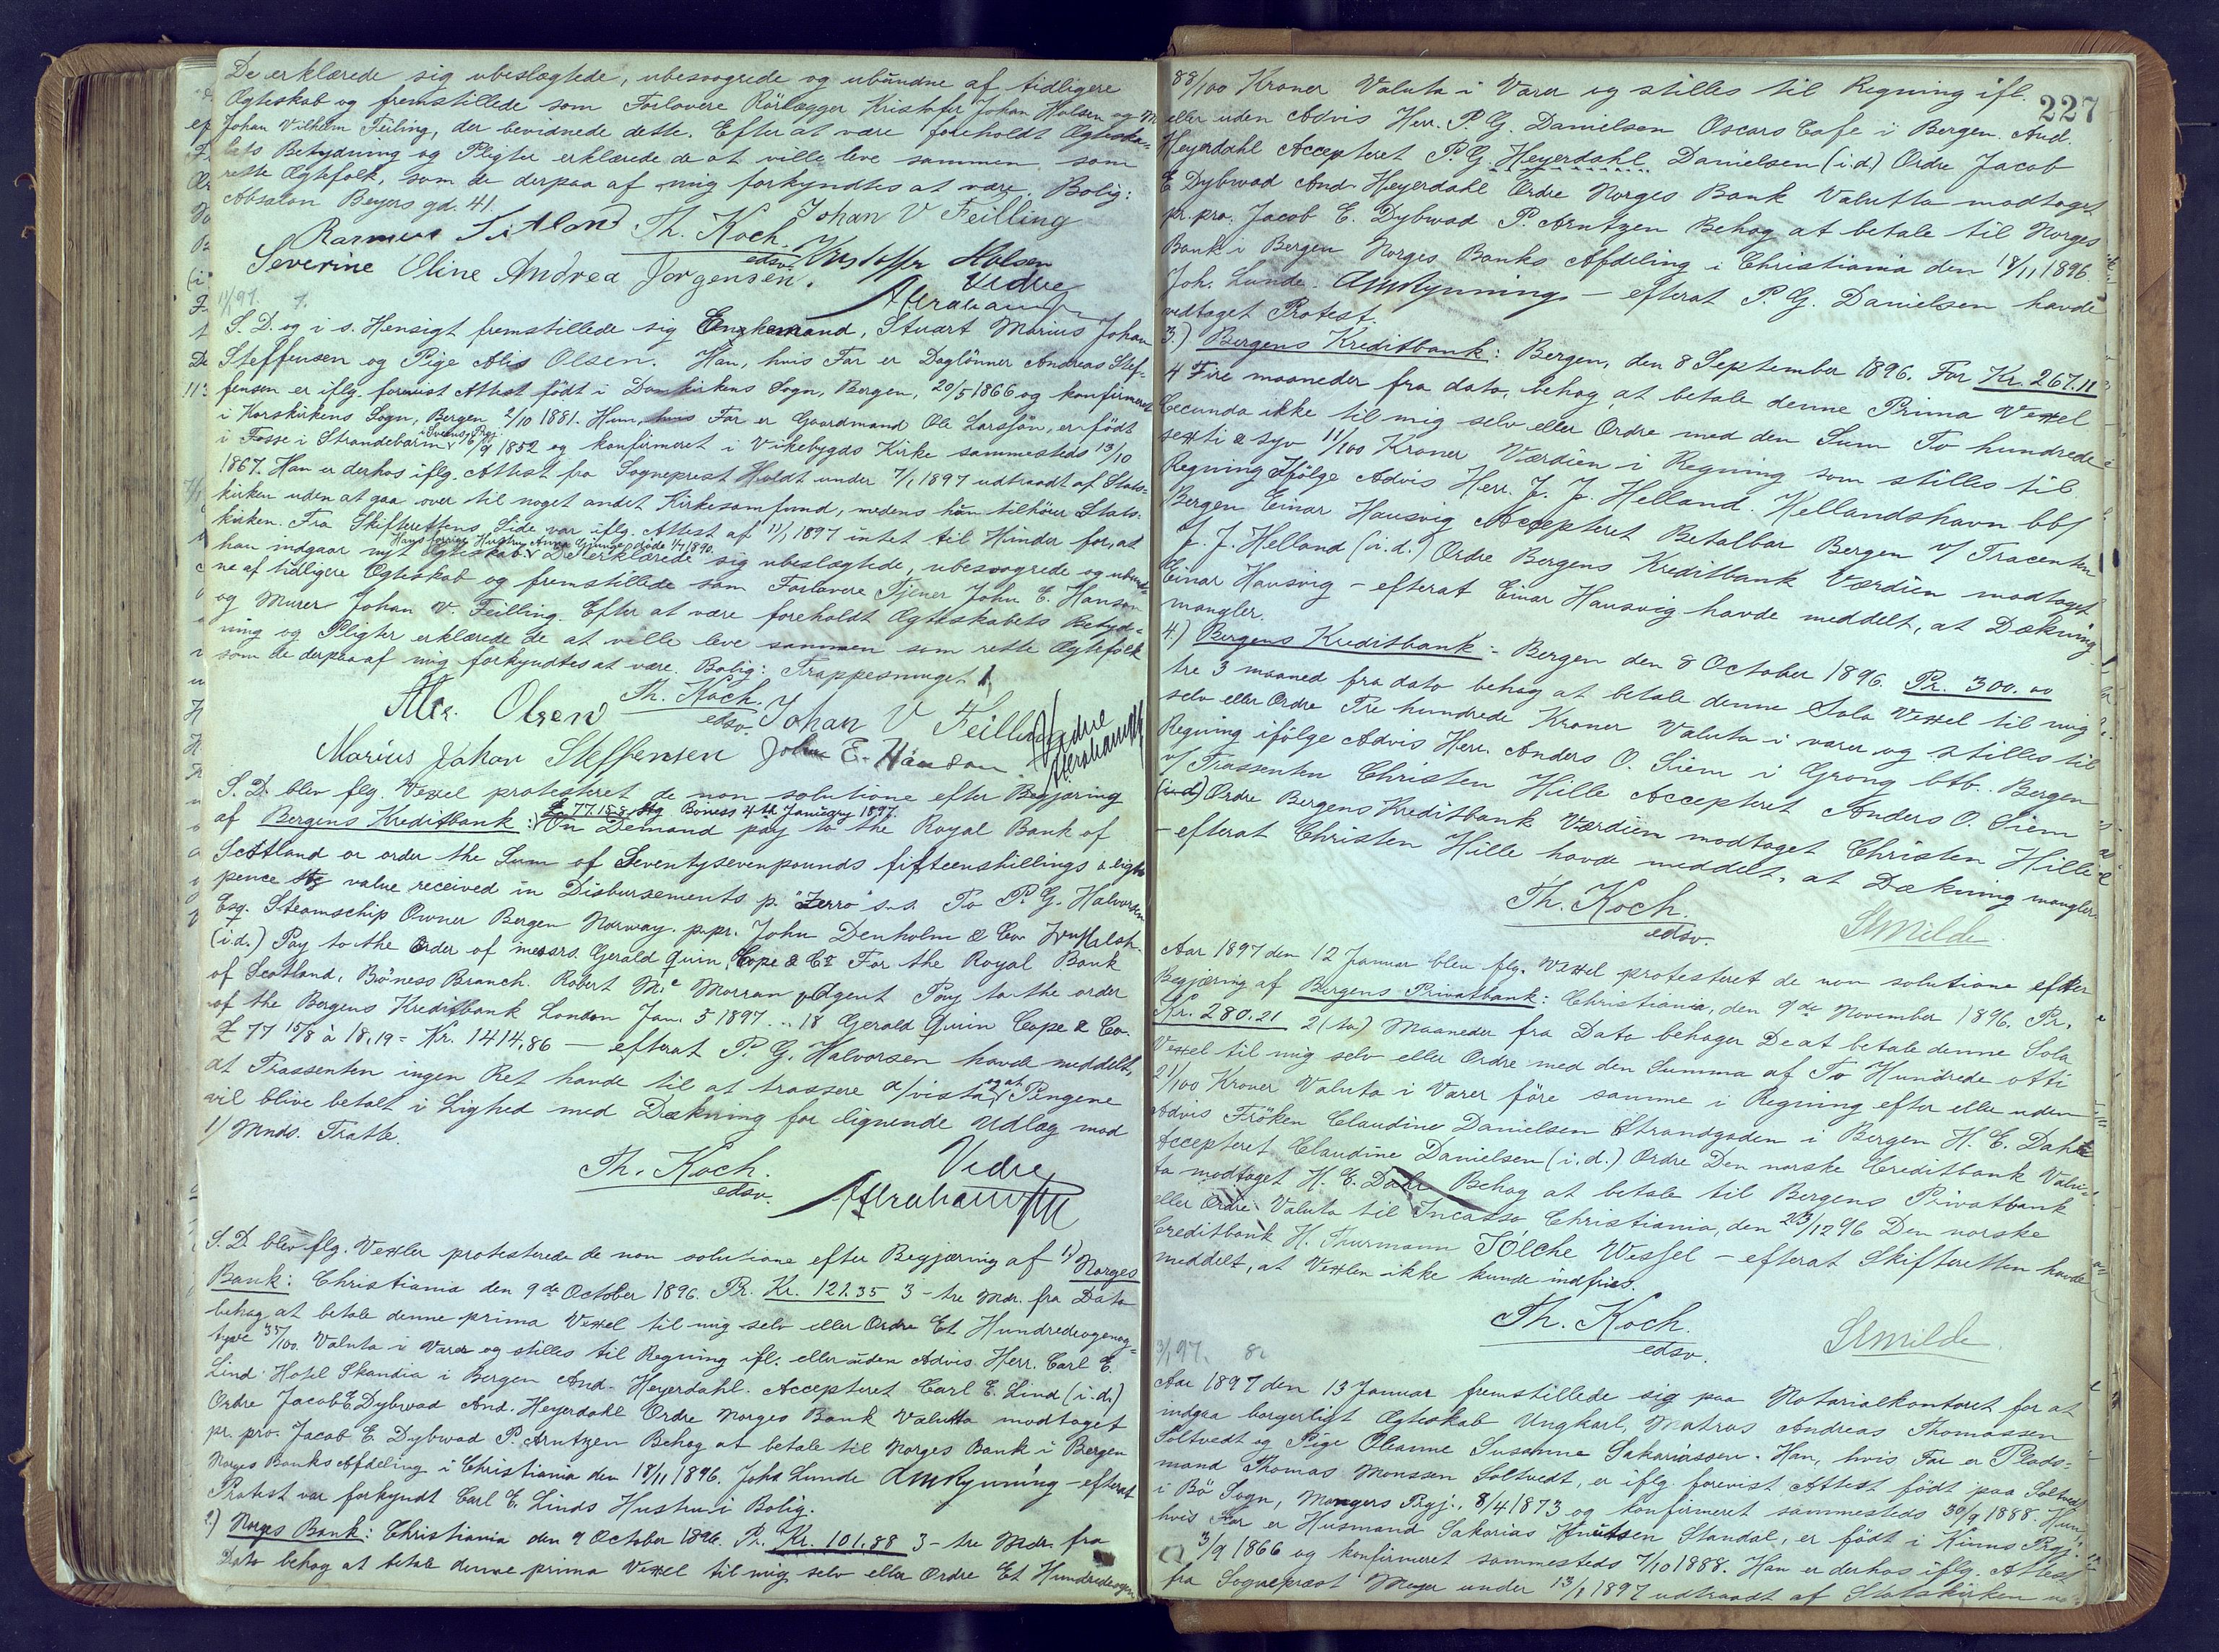 De erklærede sig ubeslægtede, ubesvogrede og ubundne af tidligere
Ægteskab og fremstillede som Forlovere Rörlægger Kristofer Johan Holsen og
Johan Vilhelm Feiling, der bevidnede dette. Efter at være foreholdt Ægteska=
bets Betydning og Pligter erklærede de at ville leve sammen som
rette Ægtefolk, som de derpaa af mig forkyndtes at være. Bolig:
Absalon Beyers gd. 41.
Johan V Feilling
Rasmus Th. Koch. edsv. Kristoffer Holsen
Severine Oline Andrea Jörgensen. Vidne
Abrahamsen
11/1 97. 7.
S. D. og i s. Hensigt fremstillede sig Enkemand, Stuart Marius Johan
Steffensen og Pige Alis Olsen. Han, hvis Far er Daglönner Andreas Stef-
fensen er iflg. forevist Attest födt i Domkirkens Sogn, Bergen, 20/5 1866 og konfirmeret
i Korskirkens Sogn, Bergen 2/10 1881. Hun, hvis Far er Gaardmand Ole Larssön, er födt
i Fosse i Strandebarm 6/9 1852 og konfirmeret i Vikebygds Kirke sammesteds 13/10
1867. Han er derhos iflg. Attest fra Sogneprest Holdt under 7/1 1897 udtraadt af Stats-
kirken uden at gaa over til noget andet Kirkesamfund, medens hun tilhörer Stats-
kirken. Fra Skifterettens Side var iflg. Attest af 11/1 1897 intet til Hinder for, at
Hans forrige Hustru Anna döde 1890.
han indgaar nyt Ægteskab. De erklærede sig ubeslægtede, ubesvogrede og ubund=
ne af tidligere Ægteskab og fremstillede som Forlovere Tjener John E. Hanson
og Murer Johan V. Feilling. Efter at være foreholdt Ægteskabets Betyd=
ning og Pligter erklærede de at ville leve sammen som rette Ægtefolk
som de derpaa af mig forkyndtes at være. Bolig: Trappesmuget 1
Alis. Olsen Th. Koch. edsv. Johan V Feilling Vidne
Marius Johan Steffensen John E. Hanson Abrahamsen
S. D. blev flg. Vexel protesteret de non solutione efter Begjæring
£ 77.15.8. Stg Boness 4th January 1897.
af Bergens Kreditbank: On Demand pay to the Royal Bank of
Scottland or order the Sum of Seventysevenpounds fifteenshillings & eight
pence Stg value received in Disbursements p. "Zerro" s.s. To P. G. Halvorsen
Esq. Steamschip Owner Bergen Norway. p.pr. John Denholm & Co
(i.d.) Pay to the Order of messrs. Gerald Quin, Cope & Co For the Royal Bank
of Scotland, Bo'ness Branch. Robert Mc Morran Agent Pay to the order
of the Bergens Kreditbank London Jan. 5 1897 .. 18 Gerald Quin Cope & Co.
£ 77 15/8 à 18,19 = Kr. 1414,86 — efterat P. G. Halvorsen havde meddelt,
at Trassenten ingen Ret havde til at trassere a/vista og at Pengene
vil blive betalt i Lighed med Dækning for lignende Udlæg mod
1/ Mnds. Tratte.
Th. Koch. edsv. Vidne
Abrahamsen
S. D. blev flg. Vexler protesterede de non solutione efter Begjæring af 1) Norges
Bank: Christiania den 9de October 1896. Pr. Kr. 121.35 3 - tre Mdr. fra Dato
behag at betale denne prima Vexel til mig selv eller Ordre Et Hundredeogenog=
tyve 35/100. Valuta i Varer og stilles til Regning ifl. eller uden Advis. Herr. Carl E.
Lind. Hotel Skandia i Bergen And. Heyerdahl. Accepteret Carl E. Lind (i.d.)
Ordre Jacob E Dybwad And. Heyerdahl Ordre Norges Bank Valutta modtaget
pr. pro. Jacob E. Dybwad P. Arntzen Behag at betale til Norges Bank i Bergen
Norges Banks Afdeling i Christiania den 18/11 1896. Joh. Lunde - efterat
Protest var forkyndt Carl E. Linds Hustru i Bolig.
2.) Norges Bank: Christiania den 9 October 1896. Pr. Kr. 101.88 3 - tre Mdr. fra
Dato behag at betale denne prima Vexel til mig selv eller Ordre Et Hundredeogen
227
88/100 Kroner Valuta i Varer og stilles til Regning ifl.
eller uden Advis Herr. P. G. Danielsen Oscars Cafe i Bergen. And.
Heyerdahl Accepteret P. G. Heyerdahl Danielsen (i.d.) Ordre Jacob
E Dybwad And. Heyerdahl Ordre Norges Bank Valutta modtaget
pr. pro. Jacob E. Dybwad P. Arntzen Behag at betale til Norges
Bank i Bergen Norges Banks Afdeling i Christiania den 18/11 1896.
Joh. Lunde. - efterat P. G. Danielsen havde
vedtaget Protest.
3.) Bergens Kreditbank: Bergen, den 8 September 1896. For Kr. 267.11
4 Fire maaneder fra dato, behag at betale denne Prima Vexel
Secunda ikke til mig selv eller Ordre med den Sum To hundrede
sexti & syv 11/100 Kroner Værdien i Regning som stilles til
Regning Ifölge Advis Herr. J. J. Helland. Hellandshavn bb/
Bergen Einar Hausvig Accepteret Betalbar Bergen v/ Tracenten
J. J. Helland (i.d.) Ordre Bergens Kreditbank Værdien modtaget
Einar Hausvig - efterat Einar Hausvig havde meddelt, at Dækning
mangler.
4.) Bergens Kreditbank: Bergen den 8 October 1896. Pr. 300.00
tre 3 maaned fra dato behag at betale denne Sola Vexel til mig
selv eller Ordre Tre hundrede Kroner Valuta i varer og stilles til
Regning ifölge Advis Herr. Anders O. Siem i Grong btb. Bergen
v/ Trassenten Christen Hille Accepteret Anders O. Siem
(i.d.) Ordre Bergens Kreditbank Værdien modtaget Christen Hille
- efterat Christen Hille havde meddelt, at Dækning mangler.
Th. Koch. edsv.
Aar 1897 den 12 Januar blev flg. Vexel protesteret de non solutione efter
Begjæring af Bergens Privatbank: Christiania, den 9de November 1896. Pr.
Kr. 280.21 2 (to) Maaneder fra Dato behager De at betale denne Sola
Vexel til mig selv eller Ordre med den Summa af To Hundrede otti
21/100 Kroner Valuta i Varer före samme i Regning efter eller uden
Advis Fröken Claudine Danielsen Strandgaden i Bergen H. E. Dahl
Accepteret Claudine Danielsen (i.d.) Ordre Den norske Creditbank Valu=
ta modtaget H. E. Dahl Behag at betale til Bergens Privatbank
eller Ordre Valuta til Incasso, Christiania, den 23/12 96 Den norske
Creditbank H. Thurmann Tölche Wessel - efterat Skifteretten havde
meddelt, at Vexlen ikke kunde indfries.
Th. Koch. edsv.
8.
Aar 1897 den 13 Januar fremstillede sig paa Notarialkontoret for at
indgaa borgerligt Ægteskab Ungkarl, Matros Andreas Thomassen
Soltvedt og Pige Oleanne Susanne Sakariassen. Han, hvis Far er Plads=
mand Thomas Monssen Soltvedt, er iflg. forevist Attest födt paa Soltvedt
i Bö Sogn, Mangers Prgj., 8/4 1873 og konfirmeret sammesteds 30/9 1888. Hun,
hvis Far er Husmand Sakarias Knutsen Standal, er födt i Kinns Prgj.
3/9 1866 og konfirmeret sammesteds 7/10 1888. Han er derhos iflg. Attest
fra Sogneprest Meyer under 13/1 1897 udtraadt af Statskirken